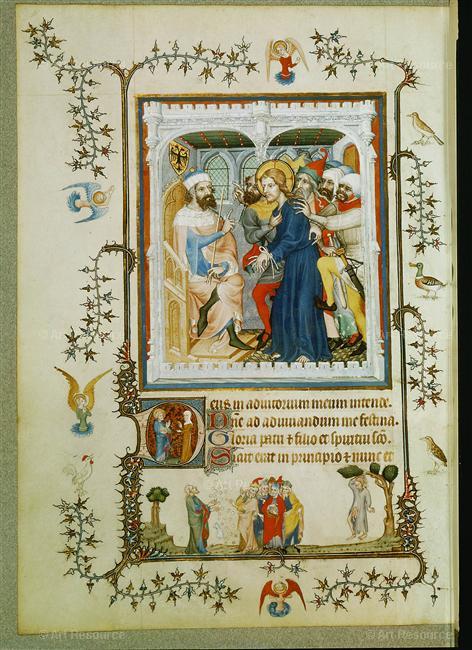 Deus in adiutorium meum intende.
Dne ad adiuuandum me festina.
Gloria patri et filio et spiritui sco.
Sicut erat in principio et nunc et
© Art Resource
© Art Resource